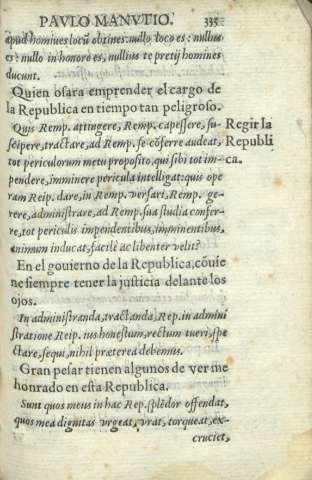 PAVLO MANVTIO. 335
apud homines locũ obtines: nullo loco es: nullus
es: nullo in honore es, nullius te pretij homines
ducunt.
Quien osara emprender el cargo de
la Republica en tiempo tan peligroso.
Quis Remp. attingere, Remp. capessere, su-
scipere, tractare, ad Remp. se cõferre audeat,
tot periculorum metu proposito, qui sibi tot im-
pendere, imminere pericula intelligat: quis ope
ram Reip. dare, in Remp. versari, Remp. ge-
rere, administrare, ad Remp. sua studia confer-
re, tot periculis impendentibus, imminentibus,
animum inducat, facilè ac libenter velit?
Regir la
Republi
ca.
En el gouierno de la Republica, cõuie
ne siempre tener la justicia delante los
ojos.
In administranda, tractanda, Rep. in admini
stratione Reip. ius honestum, rectum tueri, spe
ctare, sequi, nihil præterea debemus.
Gran pesar tienen algunos de ver me
honrado en esta Republica.
Sunt quos meus in hac Rep. splẽdor offendat,
quos mea dignitas vrgeat, vrat, torqueat, ex-
cruciet,